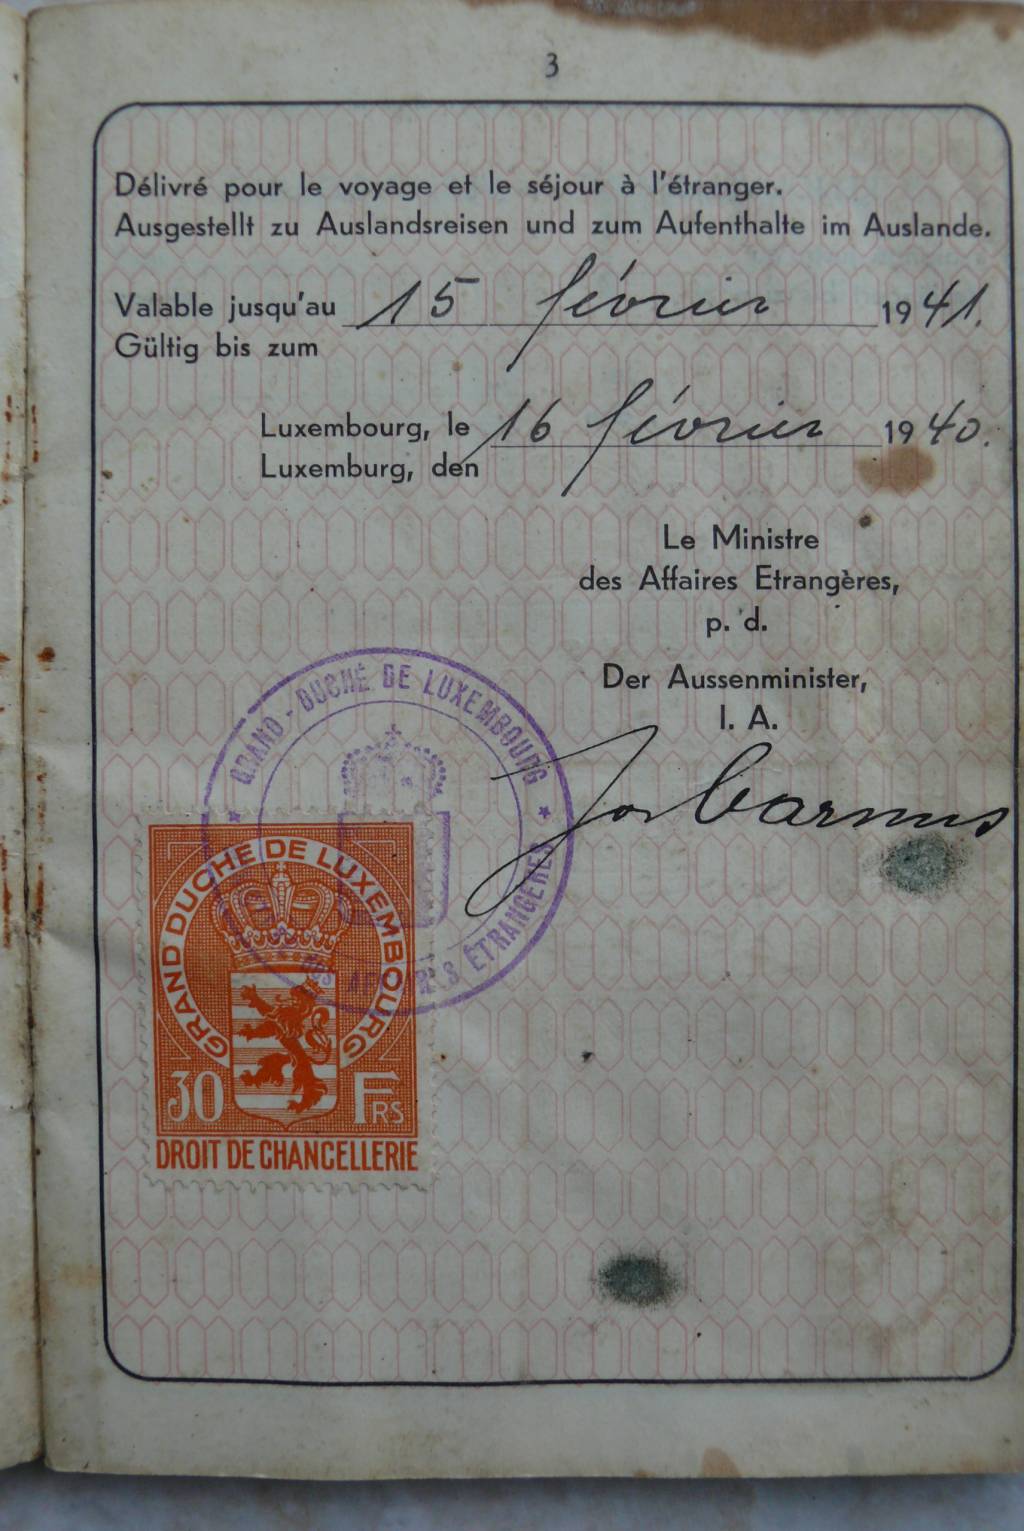 3
Délivré pour le voyage et le séjour à l'étranger.
Ausgestellt zu Auslandsreisen und zum Aufenthalte im Auslande.
Valable jusqu'au 15 février 1941.
Gültig bis zum
Luxembourg, le 16 février 1940.
Luxemburg, den
Le Ministre
des Affaires Etrangères,
p. d.
Der Aussenminister,
I. A.
GRAND-DUCHÉ DE LUXEMBOURG
ÉTRANGÈRES
GRAND DUCHÉ DE LUXEMBOURG
30 FRS
DROIT DE CHANCELLERIE